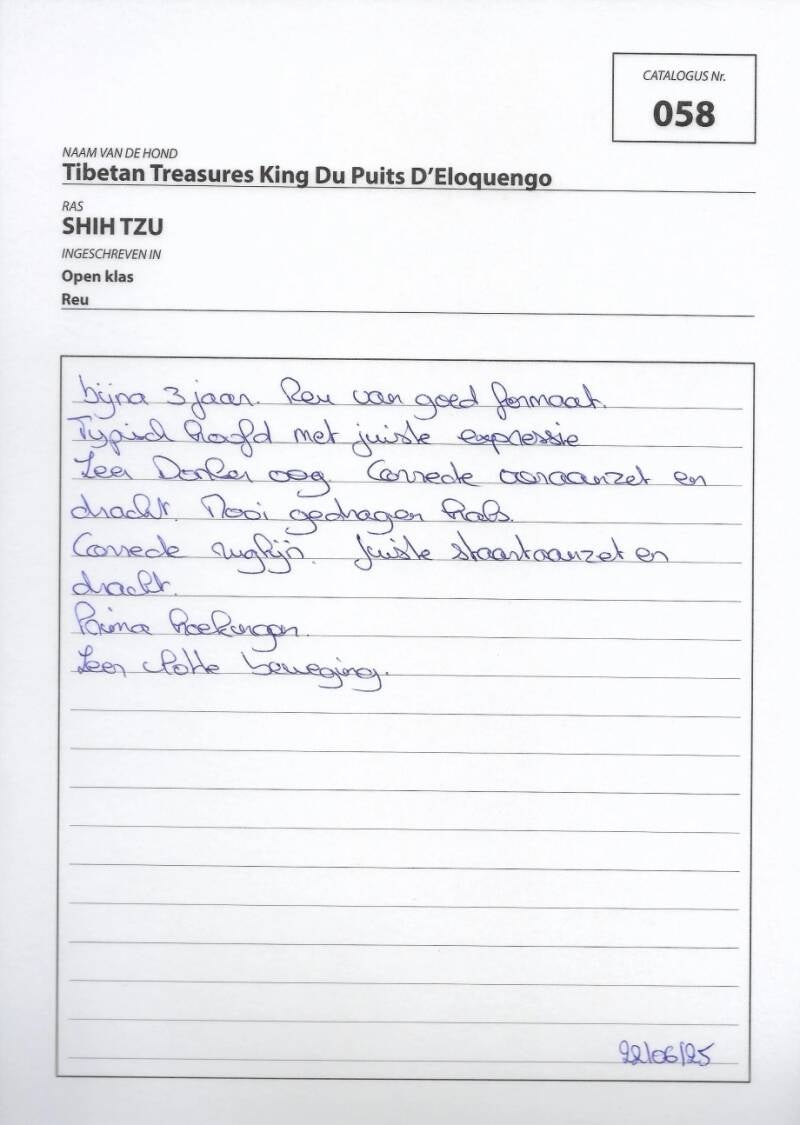 CATALOGUS Nr.
058
NAAM VAN DE HOND
Tibetan Treasures King Du Puits D'Eloquengo
RAS
SHIH TZU
INGESCHREVEN IN
Open klas
Reu
bijna 3 jaar. Reu van goed formaat.
Typich hoofd met juiste expressie
Zeer Donker oog. Correcte ooraanzet en
dracht. Mooi gedragen hals.
Correcte ruglijn. Juiste staartaanzet en
dracht.
Prima hoekingen.
Zeer vlotte beweging.
22/06/25